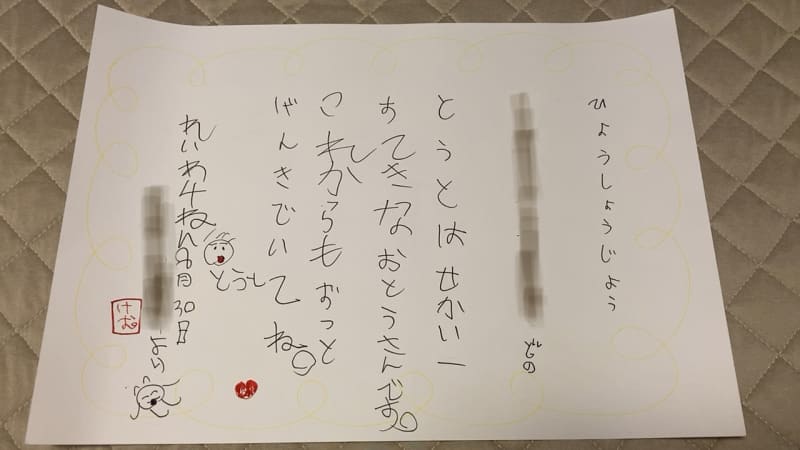 ひょうしょうじょう
どの
とうとはせかい一
すてきなおとうさんです。
これからもずっと
げんきでいてね。
とうと
れいわ4ねん8月30日
より
けむ